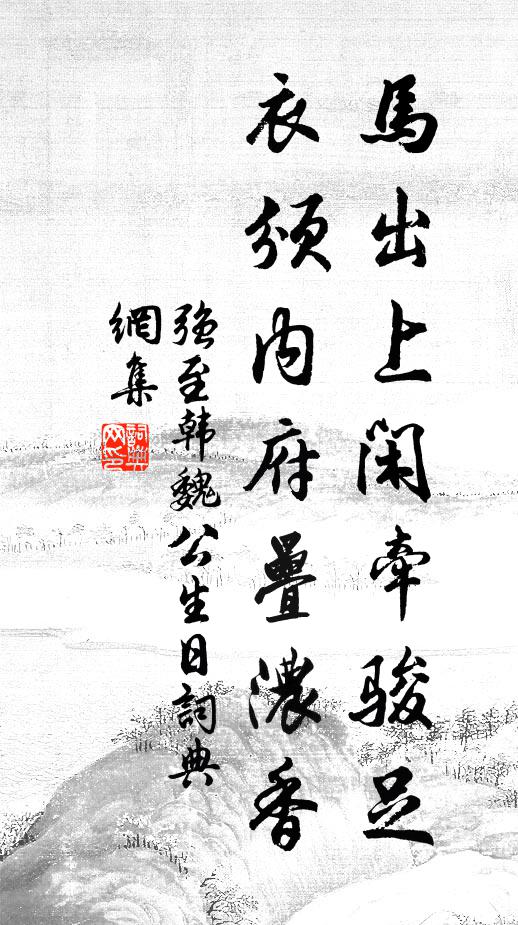 馬出上閑牽骏足
衣頒内府疊濃香
强至韩魏公生日詞典
網集